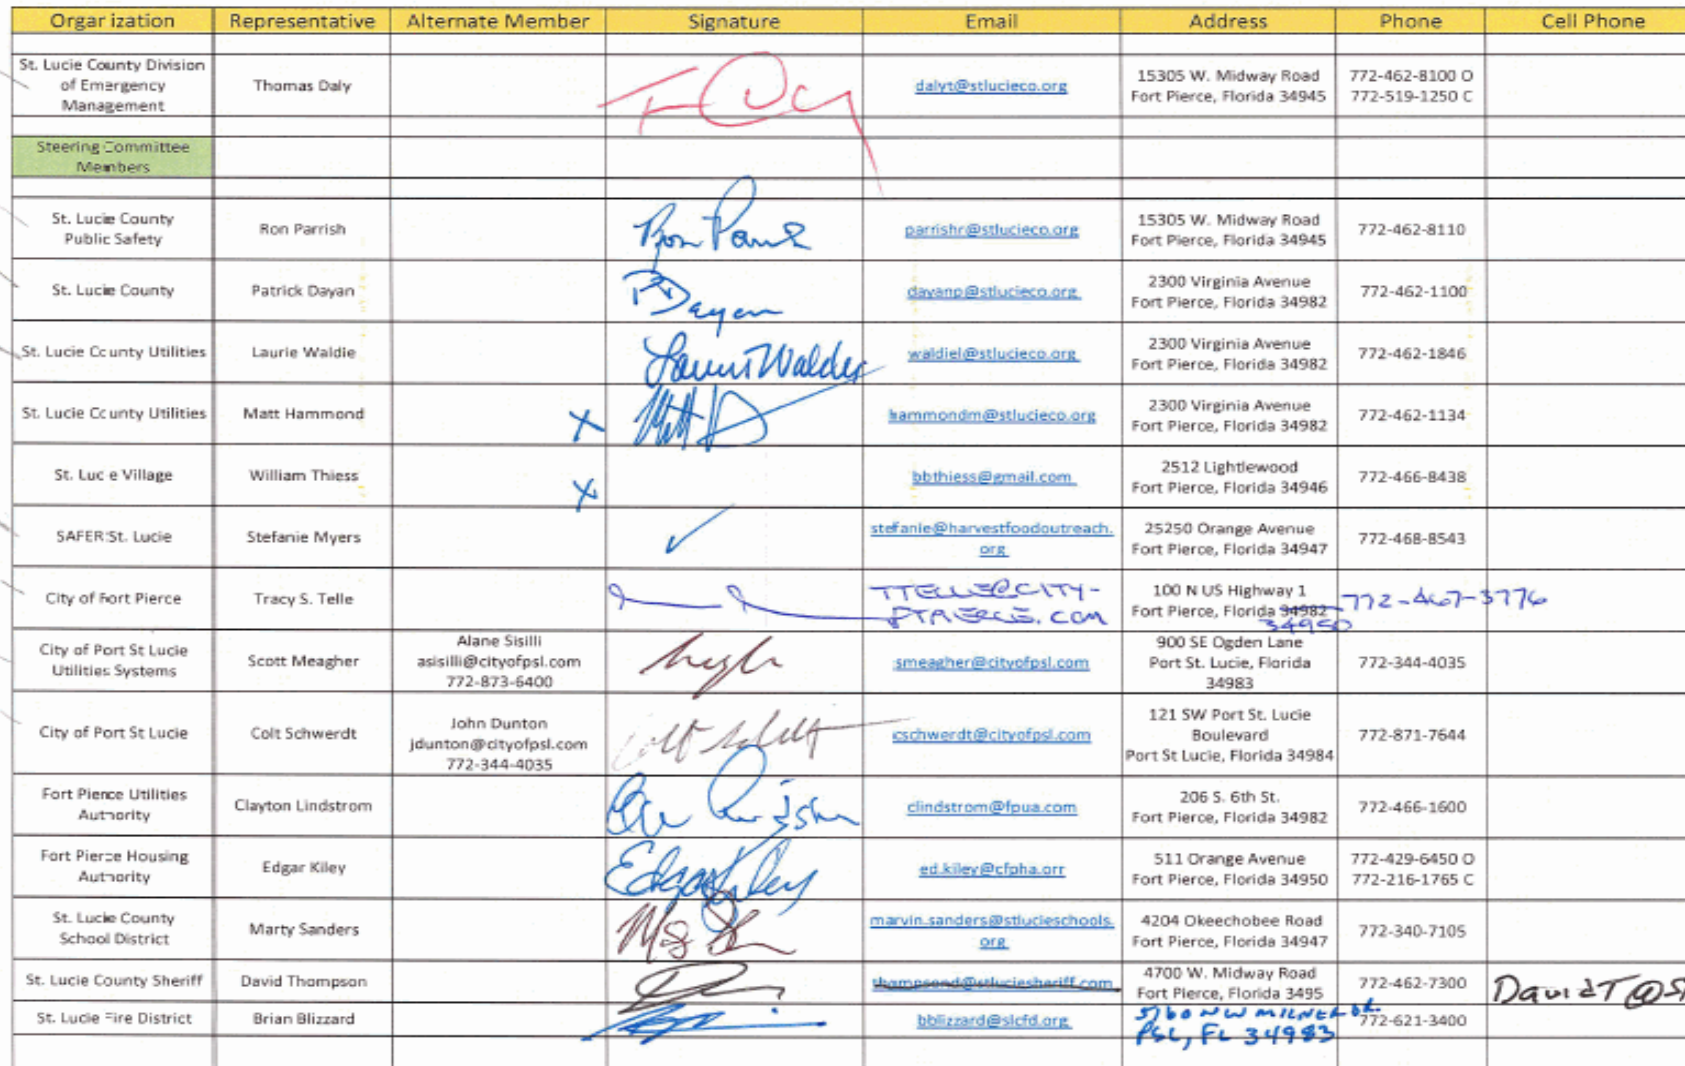 Organization Representative Alternate Member Signature Email Address Phone Cell Phone
St. Lucie County Division
of Emergency
Management
Thomas Daly
dalyt@stlucieco.org
15305 W. Midway Road
Fort Pierce, Florida 34945
772-462-8100 O
772-519-1250 C
Steering Committee
Members
St. Lucie County
Public Safety
Ron Parrish
parrishr@stlucieco.org
15305 W. Midway Road
Fort Pierce, Florida 34945
772-462-8110
St. Lucie County
Patrick Dayan
P Dayan
dayanp@stlucieco.org
2300 Virginia Avenue
Fort Pierce, Florida 34982
772-462-1100
St. Lucie County Utilities
Laurie Waldie
waldiel@stlucieco.org
2300 Virginia Avenue
Fort Pierce, Florida 34982
772-462-1846
St. Lucie County Utilities
Matt Hammond
X
hammondm@stlucieco.org
2300 Virginia Avenue
Fort Pierce, Florida 34982
772-462-1134
St. Lucie Village
William Thiess
X
bbthiess@gmail.com
2512 Lightlewood
Fort Pierce, Florida 34946
772-466-8438
SAFER St. Lucie
Stefanie Myers
✓
stefanie@harvestfoodoutreach.
org
25250 Orange Avenue
Fort Pierce, Florida 34947
772-468-8543
City of Fort Pierce
Tracy S. Telle
TTELLE@CITY-
FTPIERCE.COM
100 N US Highway 1
Fort Pierce, Florida 34982
34950
772-467-3776
City of Port St Lucie
Utilities Systems
Scott Meagher
Alane Sisilli
asisilli@cityofpsl.com
772-873-6400
smeagher@cityofpsl.com
900 SE Ogden Lane
Port St. Lucie, Florida
34983
772-344-4035
City of Port St Lucie
Colt Schwerdt
John Dunton
jdunton@cityofpsl.com
772-344-4035
cschwerdt@cityofpsl.com
121 SW Port St. Lucie
Boulevard
Port St Lucie, Florida 34984
772-871-7644
Fort Pierce Utilities
Authority
Clayton Lindstrom
clindstrom@fpua.com
206 S. 6th St.
Fort Pierce, Florida 34982
772-466-1600
Fort Pierce Housing
Authority
Edgar Kiley
Edgar Kiley
ed.kiley@cfpha.orr
511 Orange Avenue
Fort Pierce, Florida 34950
772-429-6450 O
772-216-1765 C
St. Lucie County
School District
Marty Sanders
marvin.sanders@stlucieschools.
org
4204 Okeechobee Road
Fort Pierce, Florida 34947
772-340-7105
St. Lucie County Sheriff
David Thompson
thompsond@stluciesheriff.com
4700 W. Midway Road
Fort Pierce, Florida 3495
772-462-7300
DavidT@S
St. Lucie Fire District
Brian Blizzard
bblizzard@slcfd.org
5160 NW MILNER DR.
PSL, FL 34983
772-621-3400